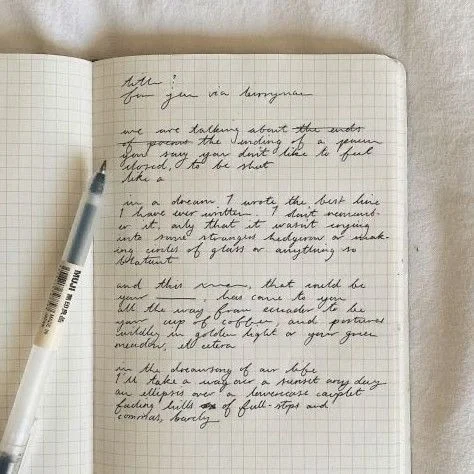 title ?
for you via
we are talking about the ends
of poems the ending of a poem
you say you don't like to feel
closed, to be shut
like a
in a dream I wrote the best line
I have ever written. I don't rememb-
er it, only that it wasn't crying
into some stranger's hedgerow or mak-
ing circles of glass or anything so
blatant
and this , that could be
your , has come to you
all the way from ecuador to be
your cup of coffee, and pastures
wildly in golden light or your green
meadow, et cetera
in the of our life
I'll take a over a sunset any day
an ellipses over a lowercase
hills of full-stops and
commas, barely
MUJI